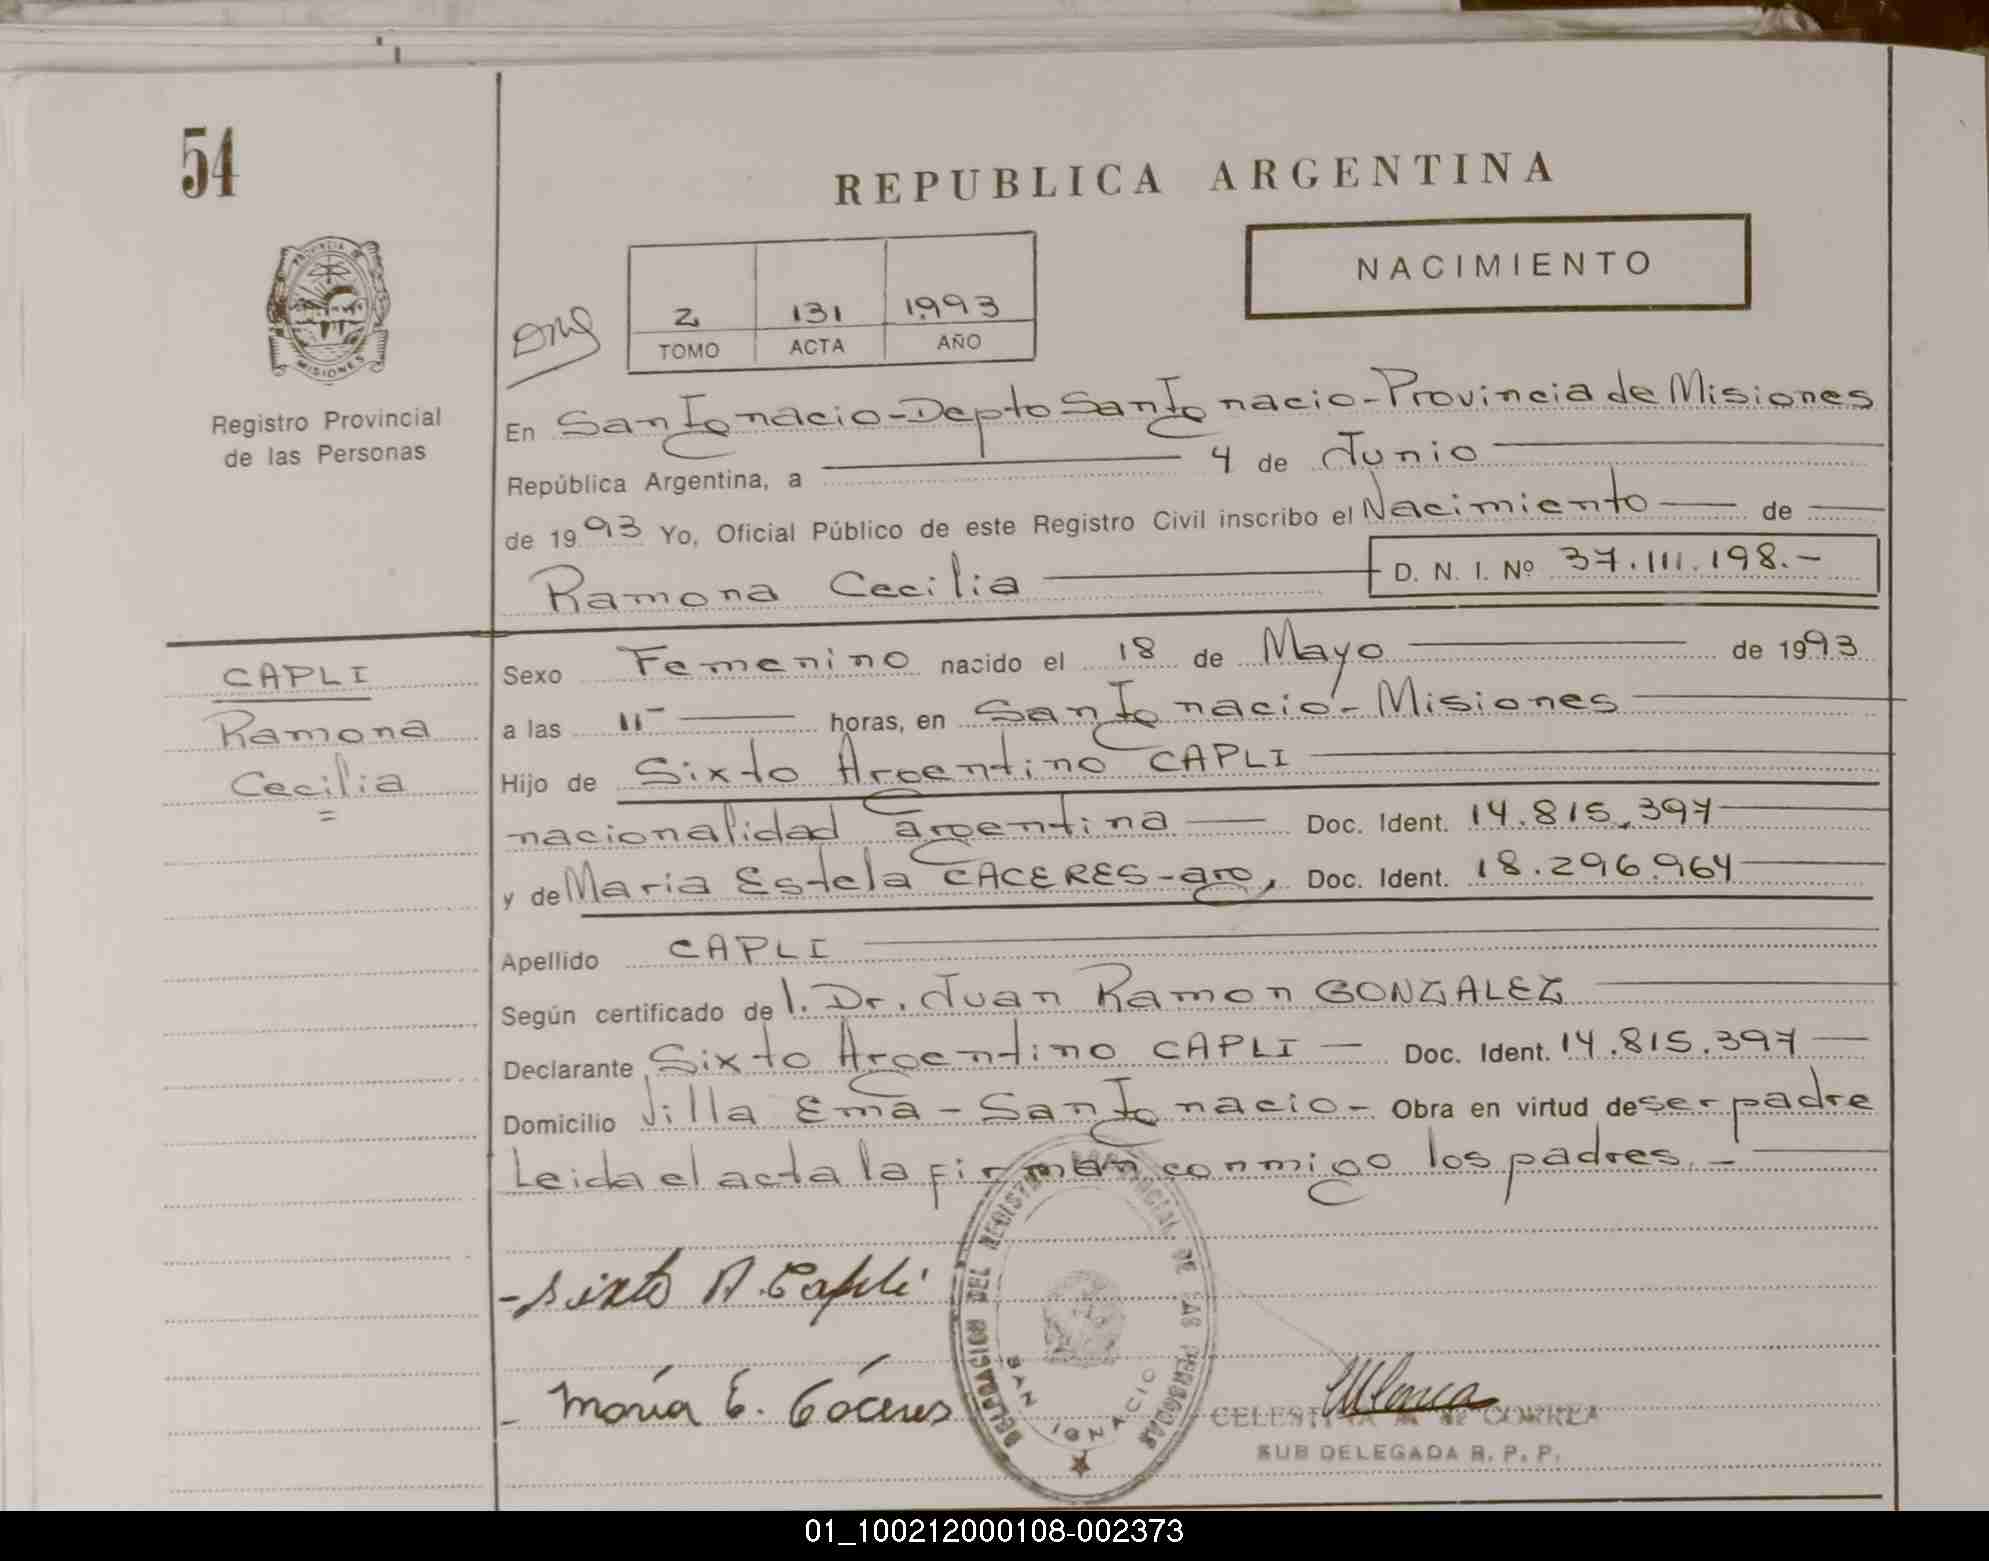 54
REPUBLICA ARGENTINA
NACIMIENTO
PROVINCIA DE
MISIONES
2 131 1993
TOMO ACTA AÑO
Registro Provincial
de las Personas
En San Ignacio - Depto San Ignacio - Provincia de Misiones
República Argentina, a 4 de Junio
de 1993 Yo, Oficial Público de este Registro Civil inscribo el Nacimiento de
Ramona Cecilia D. N. I. Nº 37.111.198.-
CAPLI
Ramona
Cecilia
Sexo Femenino nacido el 18 de Mayo de 1993
a las 11- horas, en San Ignacio - Misiones
Hijo de Sixto Argentino CAPLI
nacionalidad argentina Doc. Ident. 14.815.397
y de Maria Estela CACERES - arg, Doc. Ident. 18.296.964
Apellido CAPLI
Según certificado del. Dr. Juan Ramon GONZALEZ
Declarante Sixto Argentino CAPLI - Doc. Ident. 14.815.397
Domicilio Villa Ema - San Ignacio - Obra en virtud de ser padre
Leida el acta la firman conmigo los padres. -
- Sixto A. Capli
- María E. Cáceres
DELEGACION DEL REGISTRO PROVINCIAL DE LAS PERSONAS
SAN IGNACIO
CELESTINA de CORREA
SUB DELEGADA R. P. P.
01_100212000108-002373